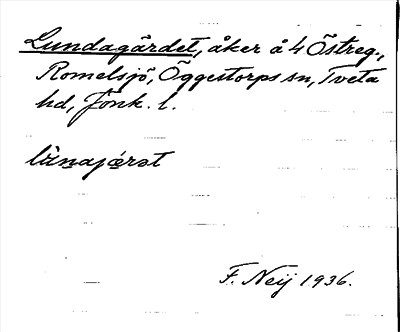 Lundagärdet, åker å 4 Östreg.,
Romelsjö, Öggestorps sn, Tveta
hd, Jönk. l.
F. Neij 1936.